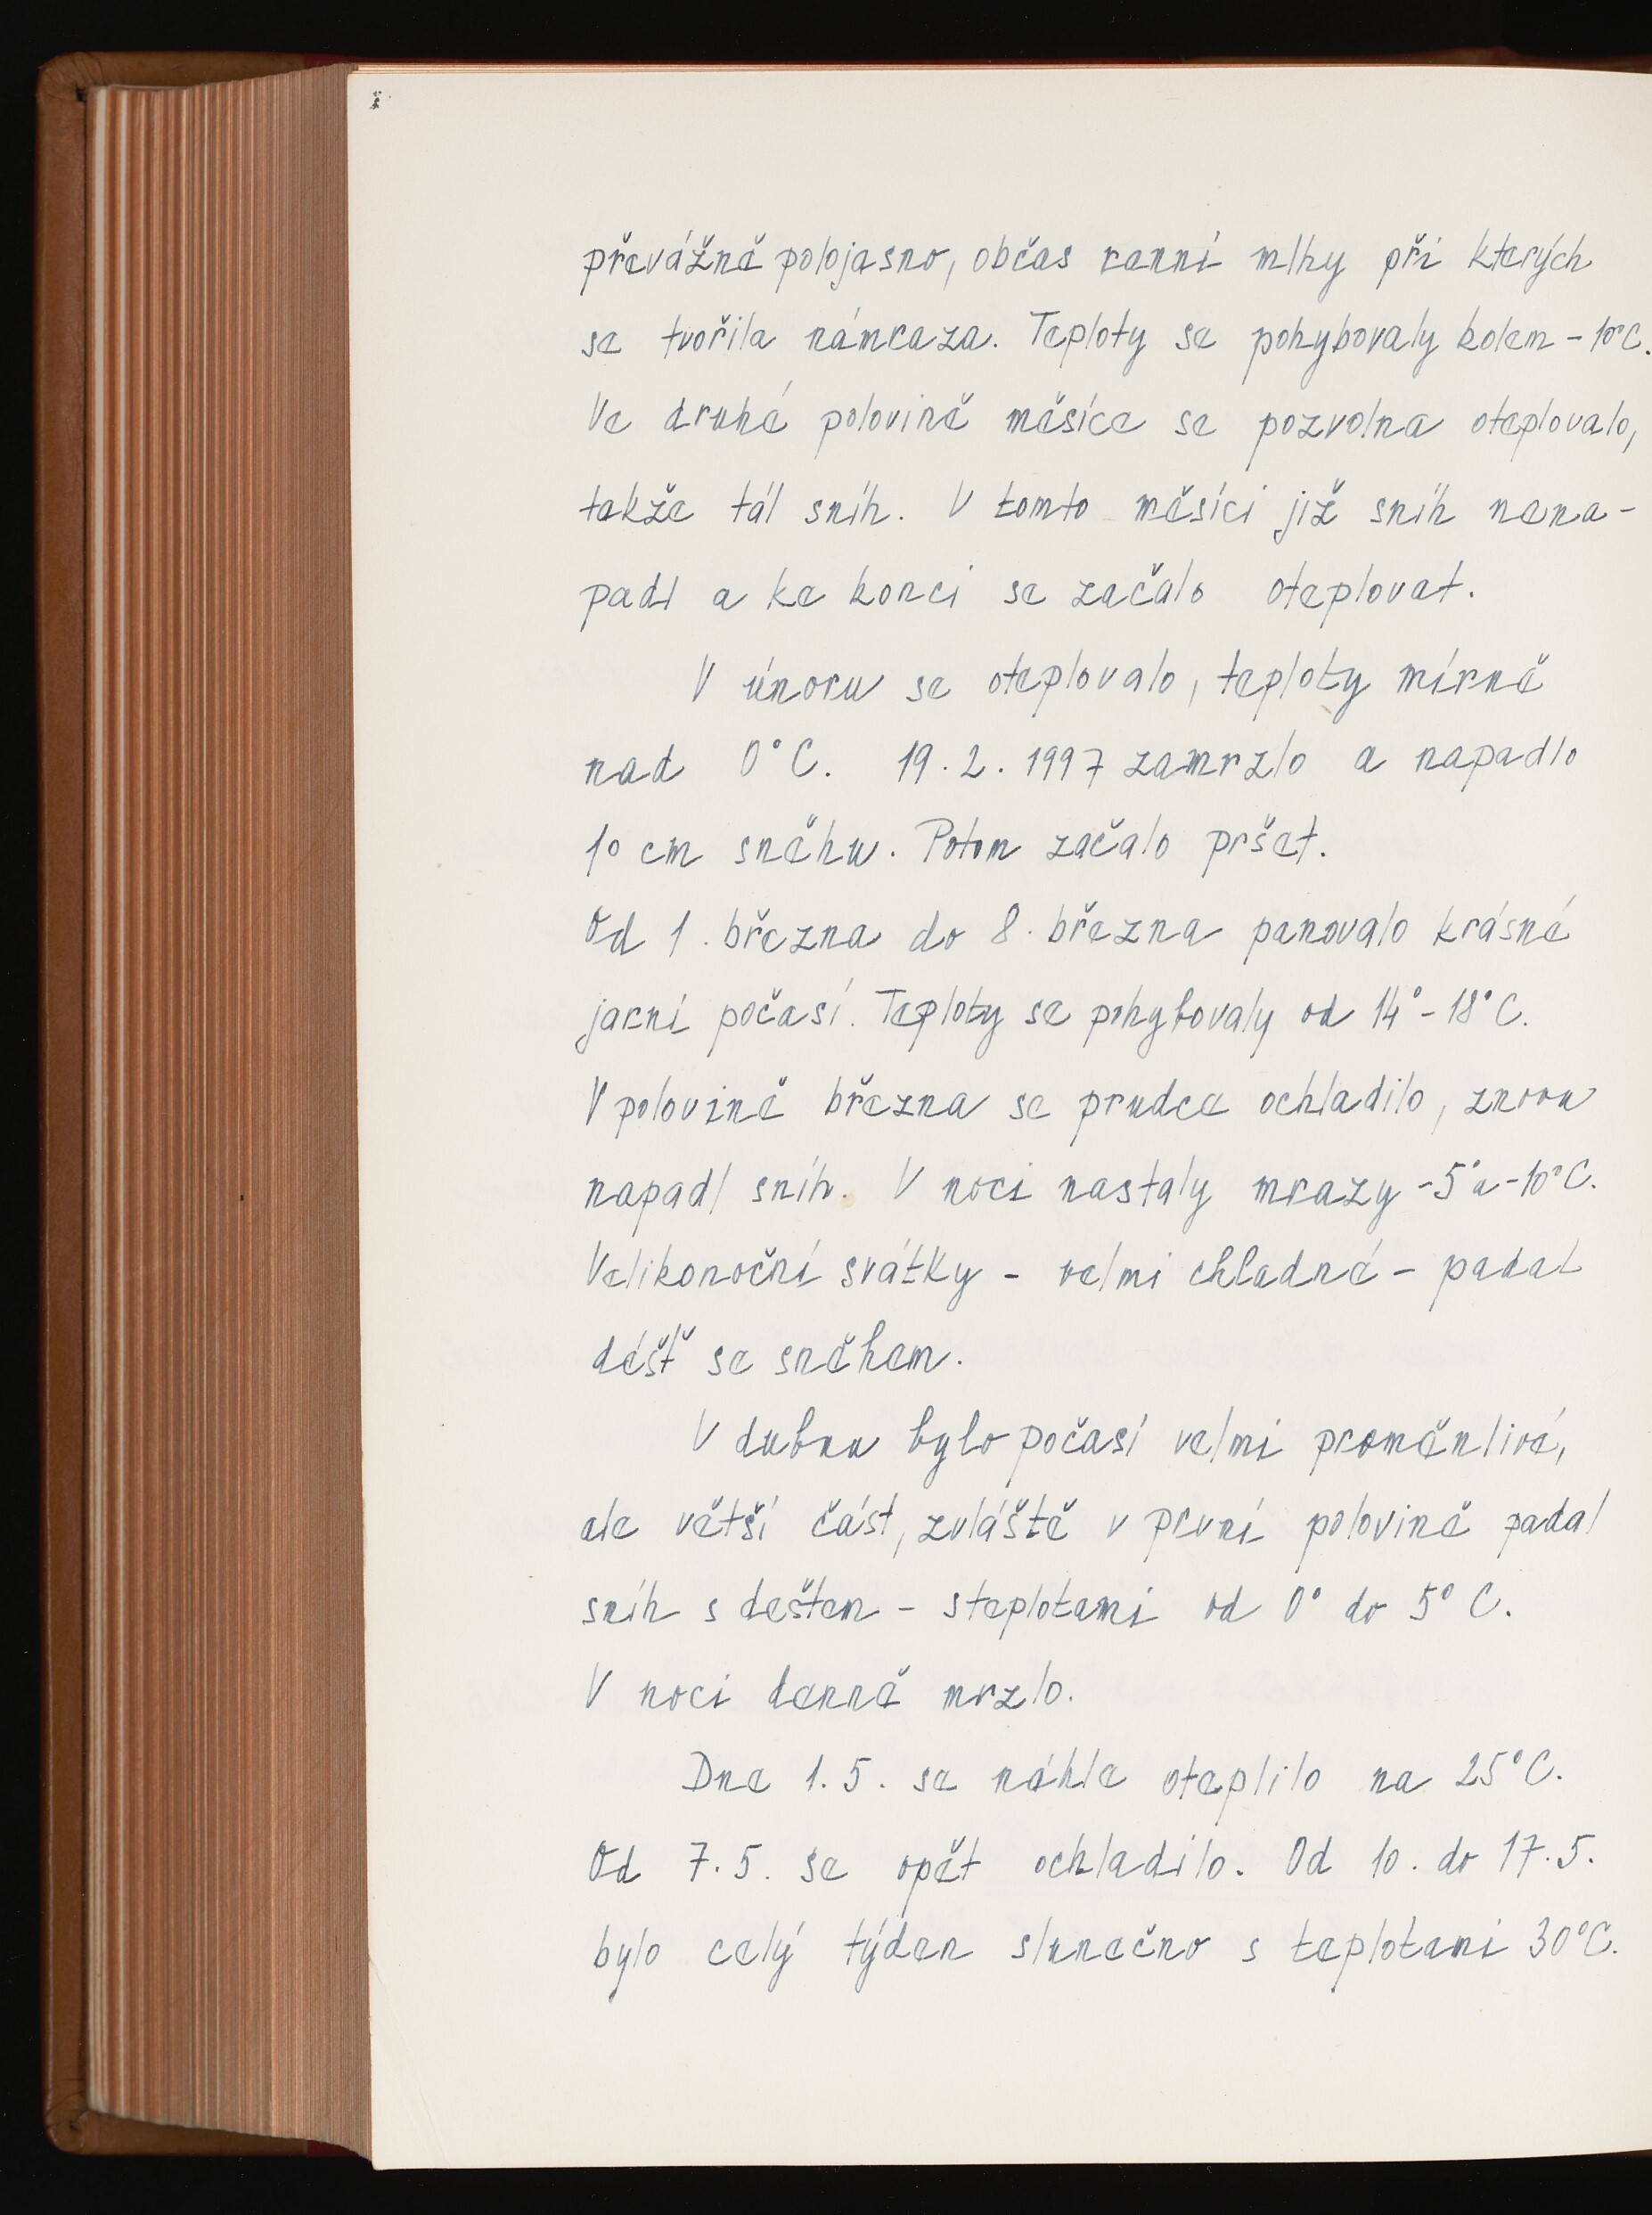 převážně polojasno, občas ranní mlhy při kterých
se tvořila námraza. Teploty se pohybovaly kolem -10°C.
Ve druhé polovině měsíce se pozvolna oteplovalo,
takže tál sníh. V tomto měsíci již sníh nena-
padl a ke konci se začalo oteplovat.
V únoru se oteplovalo, teploty mírně
nad 0°C. 19.2.1997 zamrzlo a napadlo
10 cm sněhu. Potom začalo pršet.
Od 1. března do 8. března panovalo krásné
jarní počasí. Teploty se pohybovaly od 14°-18°C.
V polovině března se prudce ochladilo, znovu
napadl sníh. V noci nastaly mrazy -5°a-10°C.
Velikonoční svátky - velmi chladné - padal
déšť se sněhem.
V dubnu bylo počasí velmi proměnlivé,
ale větší část, zvláště v první polovině padal
sníh s deštem - s teplotami od 0° do 5°C.
V noci denně mrzlo.
Dne 1.5. se náhle oteplilo na 25°C.
Od 7.5. se opět ochladilo. Od 10. do 17.5.
bylo celý týden slunečno s teplotami 30°C.